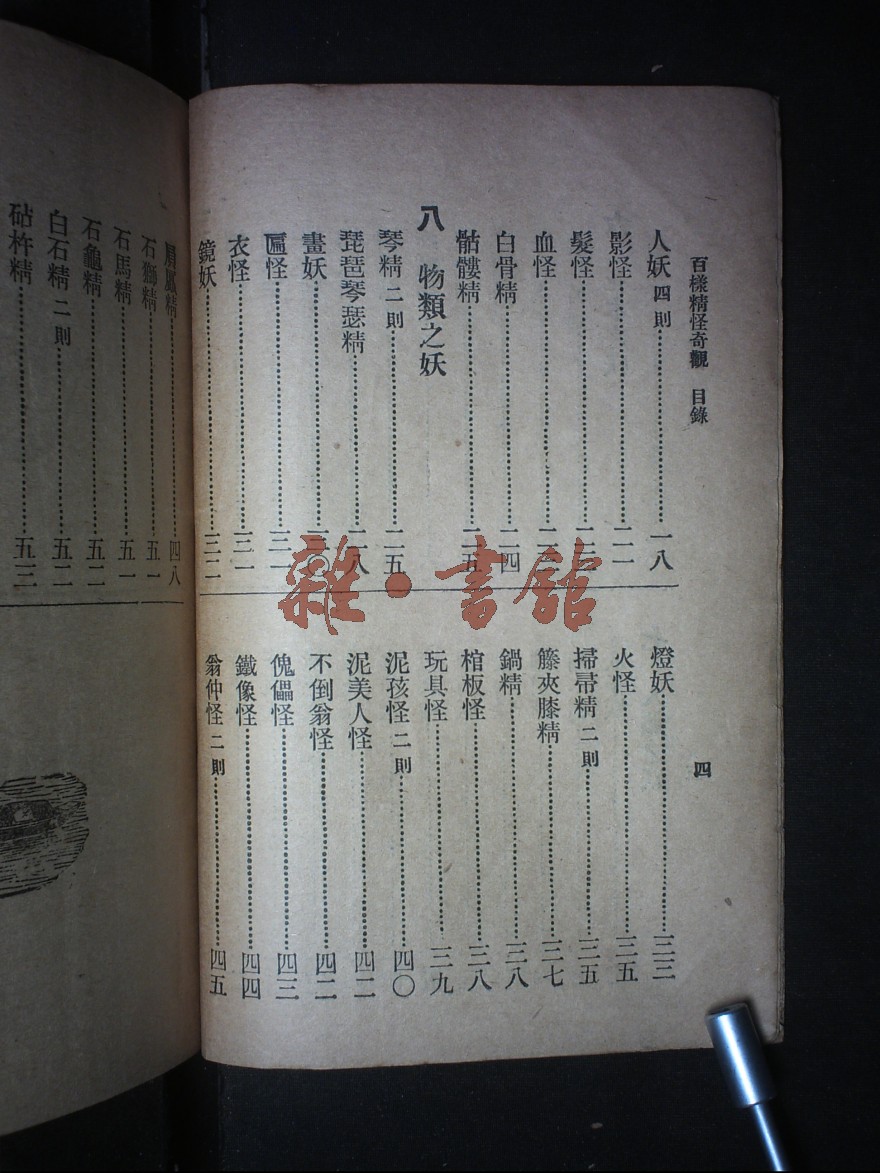 百樣精怪奇觀 目錄
四
人妖 四則……一八
影怪……二一
髮怪……
血怪……
白骨精……二四
骷髏精……二五
八 物類之妖
琴精 二則……二五
琵琶琴瑟精……二八
畫妖……三〇
匾怪……三一
衣怪……三一
鏡妖……三二
燈妖……三三
火怪……三五
掃帚精 二則……三五
籐夾膝精……三七
鍋精……三八
棺板怪……三八
玩具怪……三九
泥孩怪 二則……四〇
泥美人怪……四二
不倒翁怪……四二
傀儡怪……四三
鐵像怪……四四
翁仲怪 二則……四五
屏風精……四八
石獅精……五一
石馬精……五一
石龜精……五二
白石精 二則……五二
砧杵精……五三
雜·書館